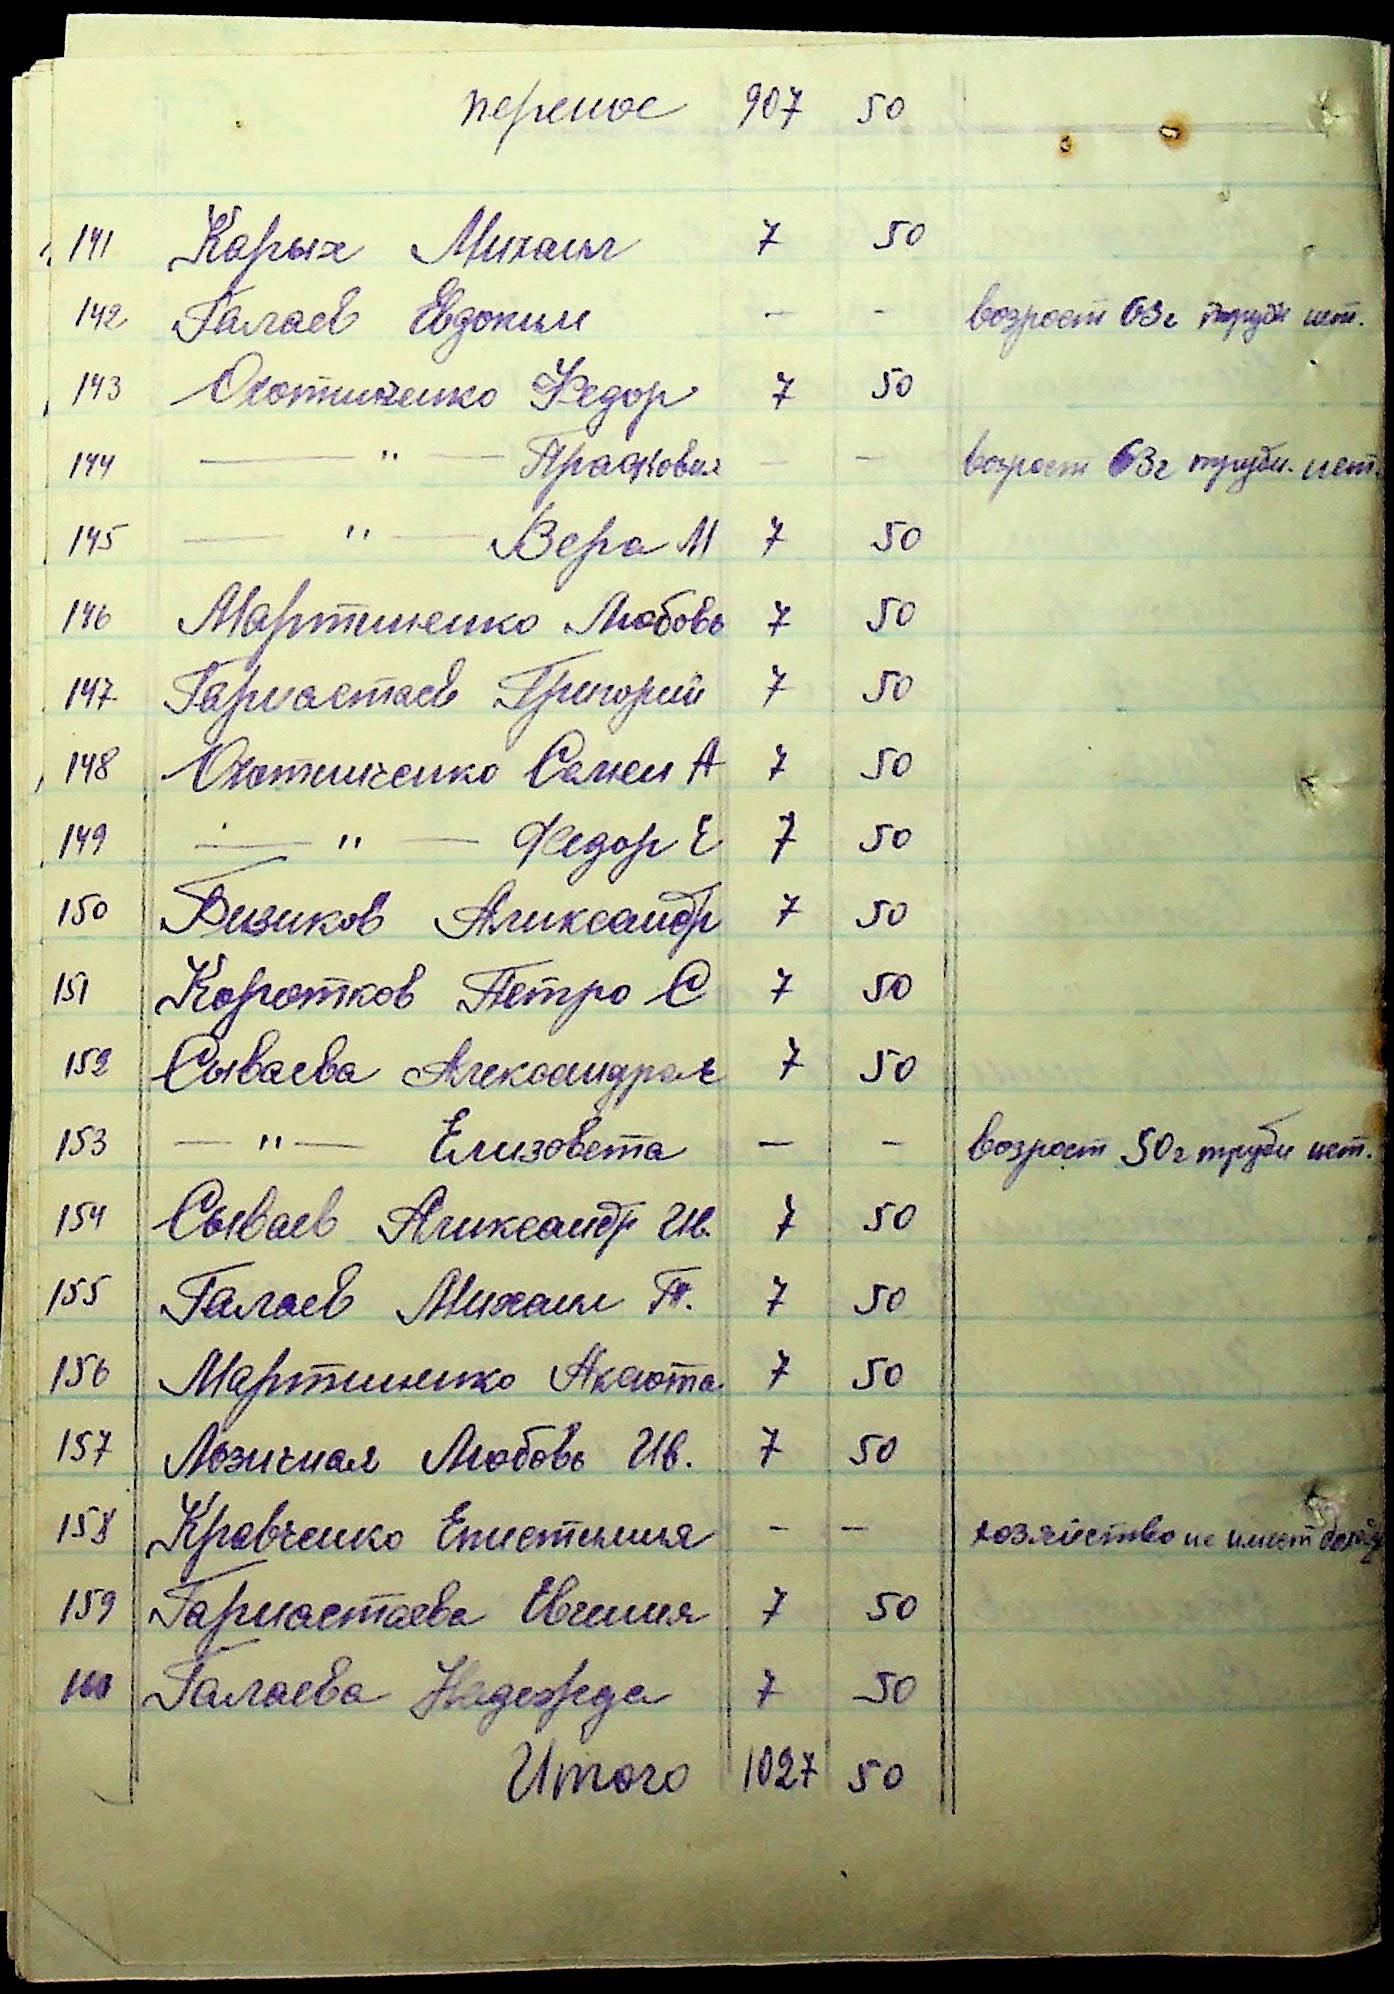 перенос 907 50
141 Карых Михаил 7 50
142 Галаев Евдоким - - возрост 63г трудн нет.
143 Охотниченко Федор 7 50
144 — " — Прасковия — — возрост 63г трудн. нет.
145 — " — Вера М 7 50
146 Мартиненко Любовь 7 50
147 Гарнастаев Григорий 7 50
148 Охотниченко Самен А 7 50
149 — " — Федор Е 7 50
150 Бизиков Аликсандр 7 50
151 Коротков Петро С 7 50
152 Сываева Александра 7 50
153 — " — Елизовета — - возрост 50г трудн нет.
154 Сываев Аликсандр Ив. 7 50
155 Галаев Михаил Т. 7 50
156 Мартиненко Аксюта 7 50
157 Лозичная Любовь Ив. 7 50
158 Кравченко Епистимия - — хозяйство не имеет
159 Гарнастаева Евгения 7 50
160 Галаева Надежда 7 50
Итого 1027 50